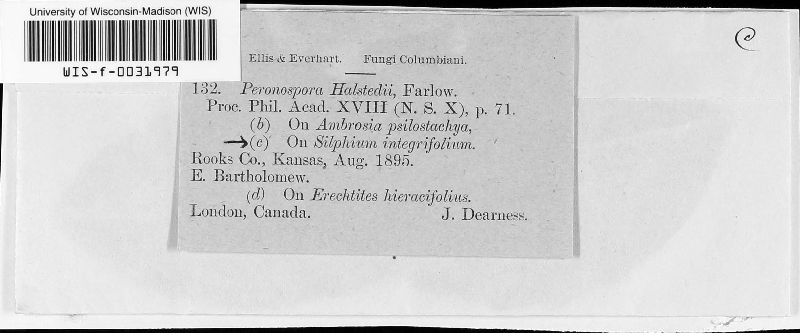 University of Wisconsin-Madison (WIS)
WIS-f-0031979
c
Ellis & Everhart. Fungi Columbiani.
132. Peronospora Halstedii, Farlow.
Proc. Phil. Acad. XVIII (N. S. X), p. 71.
(b) On Ambrosia psilostachya,
→(c) On Silphium integrifolium.
Rooks Co., Kansas, Aug. 1895.
E. Bartholomew.
(d) On Erechtites hieracifolius.
London, Canada. J. Dearness.